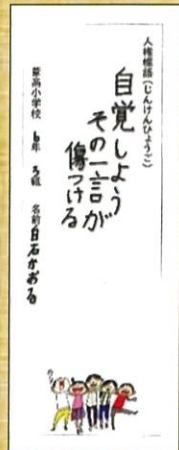 人権標語(じんけんひょうご)
自覚しよう
その一言が
傷つける
草高小学校 6年 3組 名前 白石かおる